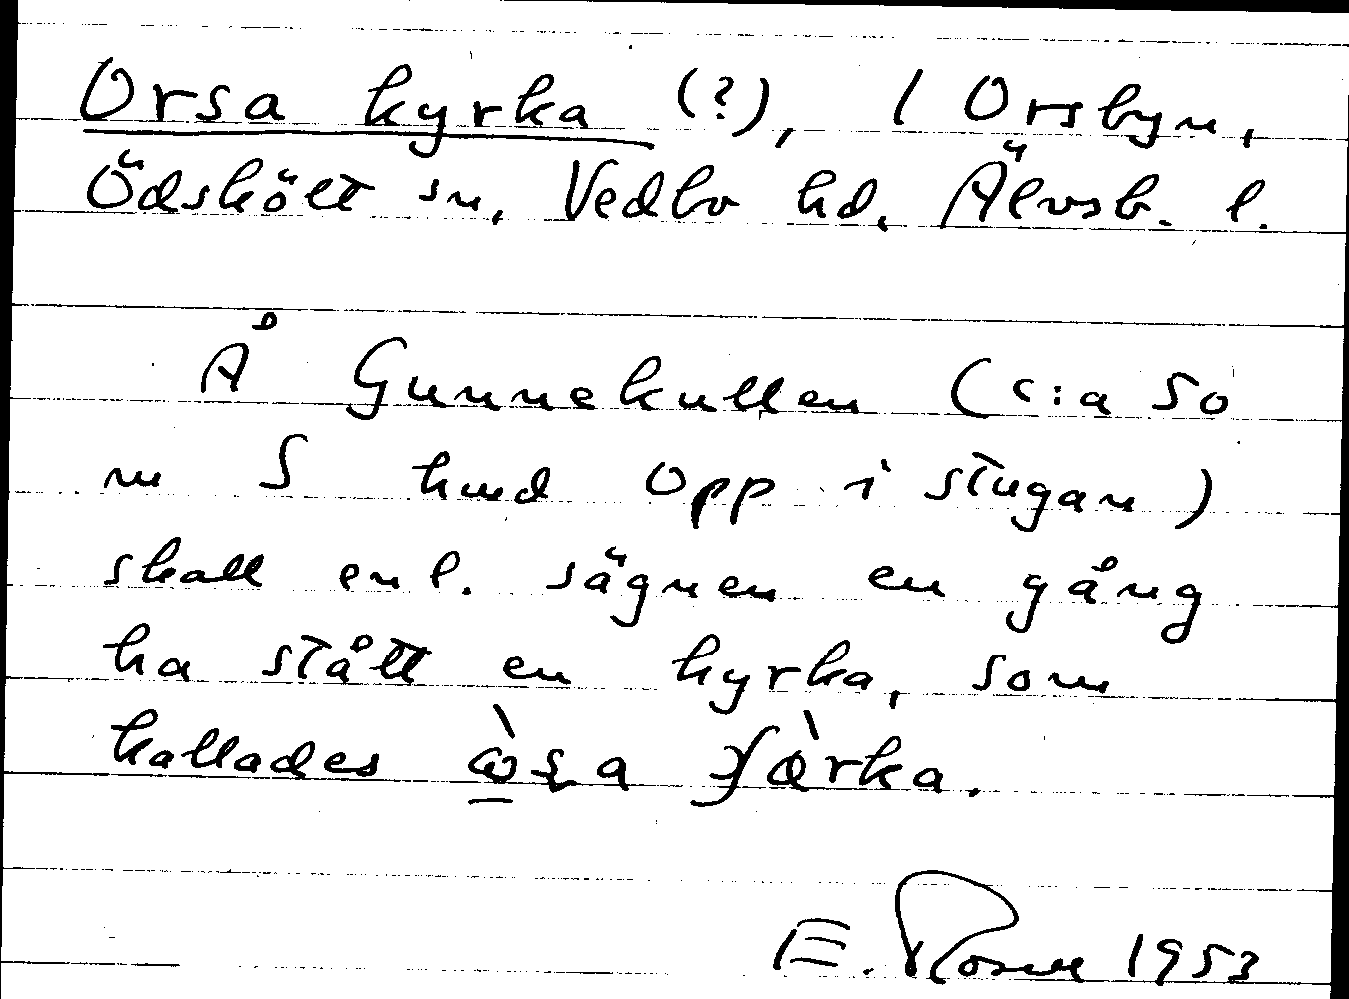 Orsa kyrka (?), 1 Orsbyn,
Ödskölt sn, Vedbo hd, Älvsb. l.
Å Gunnekullen (c:a 50
m S hmd Opp i stugan)
skall enl. sägnen en gång
ha stått en kyrka, som
kallades
E. 1953